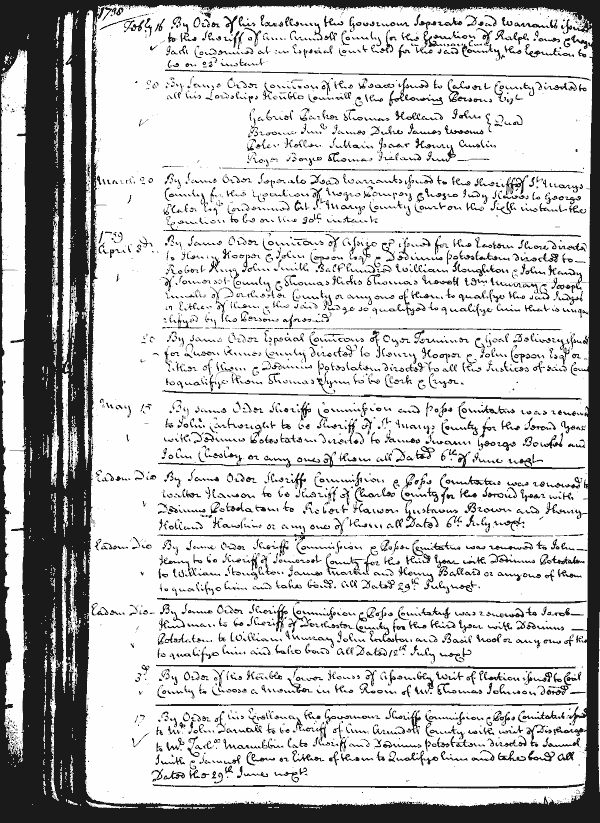 1738
Feb.ry 16 By Order of his Excellency the Governour Seperate Dead Warrants issued
to the Sheriff of Ann Arundell County for the Execution of Ralph Jones & Negro
Jack Condemned at an Especial Court held for the said County, the Execution to
be on 23d instant
20 By Same Order Com̃ission of the Peace issued to Calvert County directed to
all his Lordships Honble Councill & the following Persons Vizt
Gabriel Parker Thomas Holland John
Broome Junr James Duke James Weems
Peter Hellen Isaac Henry Austin
Roger Boyce Thomas Ireland Junr
Quor
March 20 By Same Order Seperate Dead Warrants issued to the Sheriff of St Marys
County for the Execution of Negro Pompey & Negro Indy Slaves to George
Plater Esqr Condemned at St Marys County Court on the Sixth instant the
Execution to be on the 30th instant
1739
April 3d By Same Order Com̃issions of Assize &c issued for the Eastern Shore directed
to Henry Hooper & John Copson Esqrs & Dedimus Potestatem directed to
Robert King John Smith William Stoughton & John Handy
of Somerset County & Thomas Hicks Thomas Nevett Wm Murray & Joseph
Ennalls of Dorchester County or any one of them to qualifye the said Judges
or Either of them & the said Judge so qualifyed to qualifye him that is unqua
lifyed by the Persons aforesaid
20 By Same Order Especial Com̃issions of Oyer Terminer & Goal Delivery issued
for Queen Annes County directed to Henry Hooper & John Copson Esqrs or
Either of them & Dedimus Potestatem directed to all the Justices of said County
to qualifye them Thomas to be Clerk & Cryer.
May 15 By Same Order Sheriffs Commission and Posse Comitatus was renewed
to John Cartwright to be Sheriff of St Marys County for the Second Year
with Dedimus Potestatem directed to James Swann George Bowles and
John Chesley or any one of them all Dated 6th of June next
Eadem Dio By Same Order Sheriffs Commission & Posse Comitatus was renewed to
Walter Hanson to be Sheriff of Charles County for the Second Year with
Dedimus Potestatem to Robert Hanson Gustavus Brown and Henry
Holland Hawkins or any one of them all Dated 6th July next.
Eadem Dio By Same Order Sheriffs Commission & Posse Comitatus was renewed to John
Henry to be Sheriff of Somerset County for the third Year with Dedimus Potestatem
to William Stoughton James Martin and Henry Ballard or any one of them
to qualifye him and take bond. All Dated 29th July next.
Eadem Dio By Same Order Sheriffs Commission & Posse Comitatus was renewed to Jacob
Hindman to be Sheriff of Dorchester County for the third Year with Dedimus
Potestatem to William Murray John Eccleston and Basil Noel or any one of them
to qualifye him and take bond all Dated 12th July next
3d By Order of the Honble Lower House of Assembly Writ of Election issued to Cecil
County to Choose a Member in the Room of Mr Thomas Johnson deced
17 By Order of his Excellency the Governour Sheriffs Commission & Posse Comitatus issued
to Mr John Darnall to be Sheriff of Ann Arundell County with writ of Discharge
to Mr Zach. Maccubbin late Sheriff and Dedimus potestatem directed to Samuel
Smith & Samuel Chew or Either of them to Qualifye him and take bond All
Dated the 29th June next.